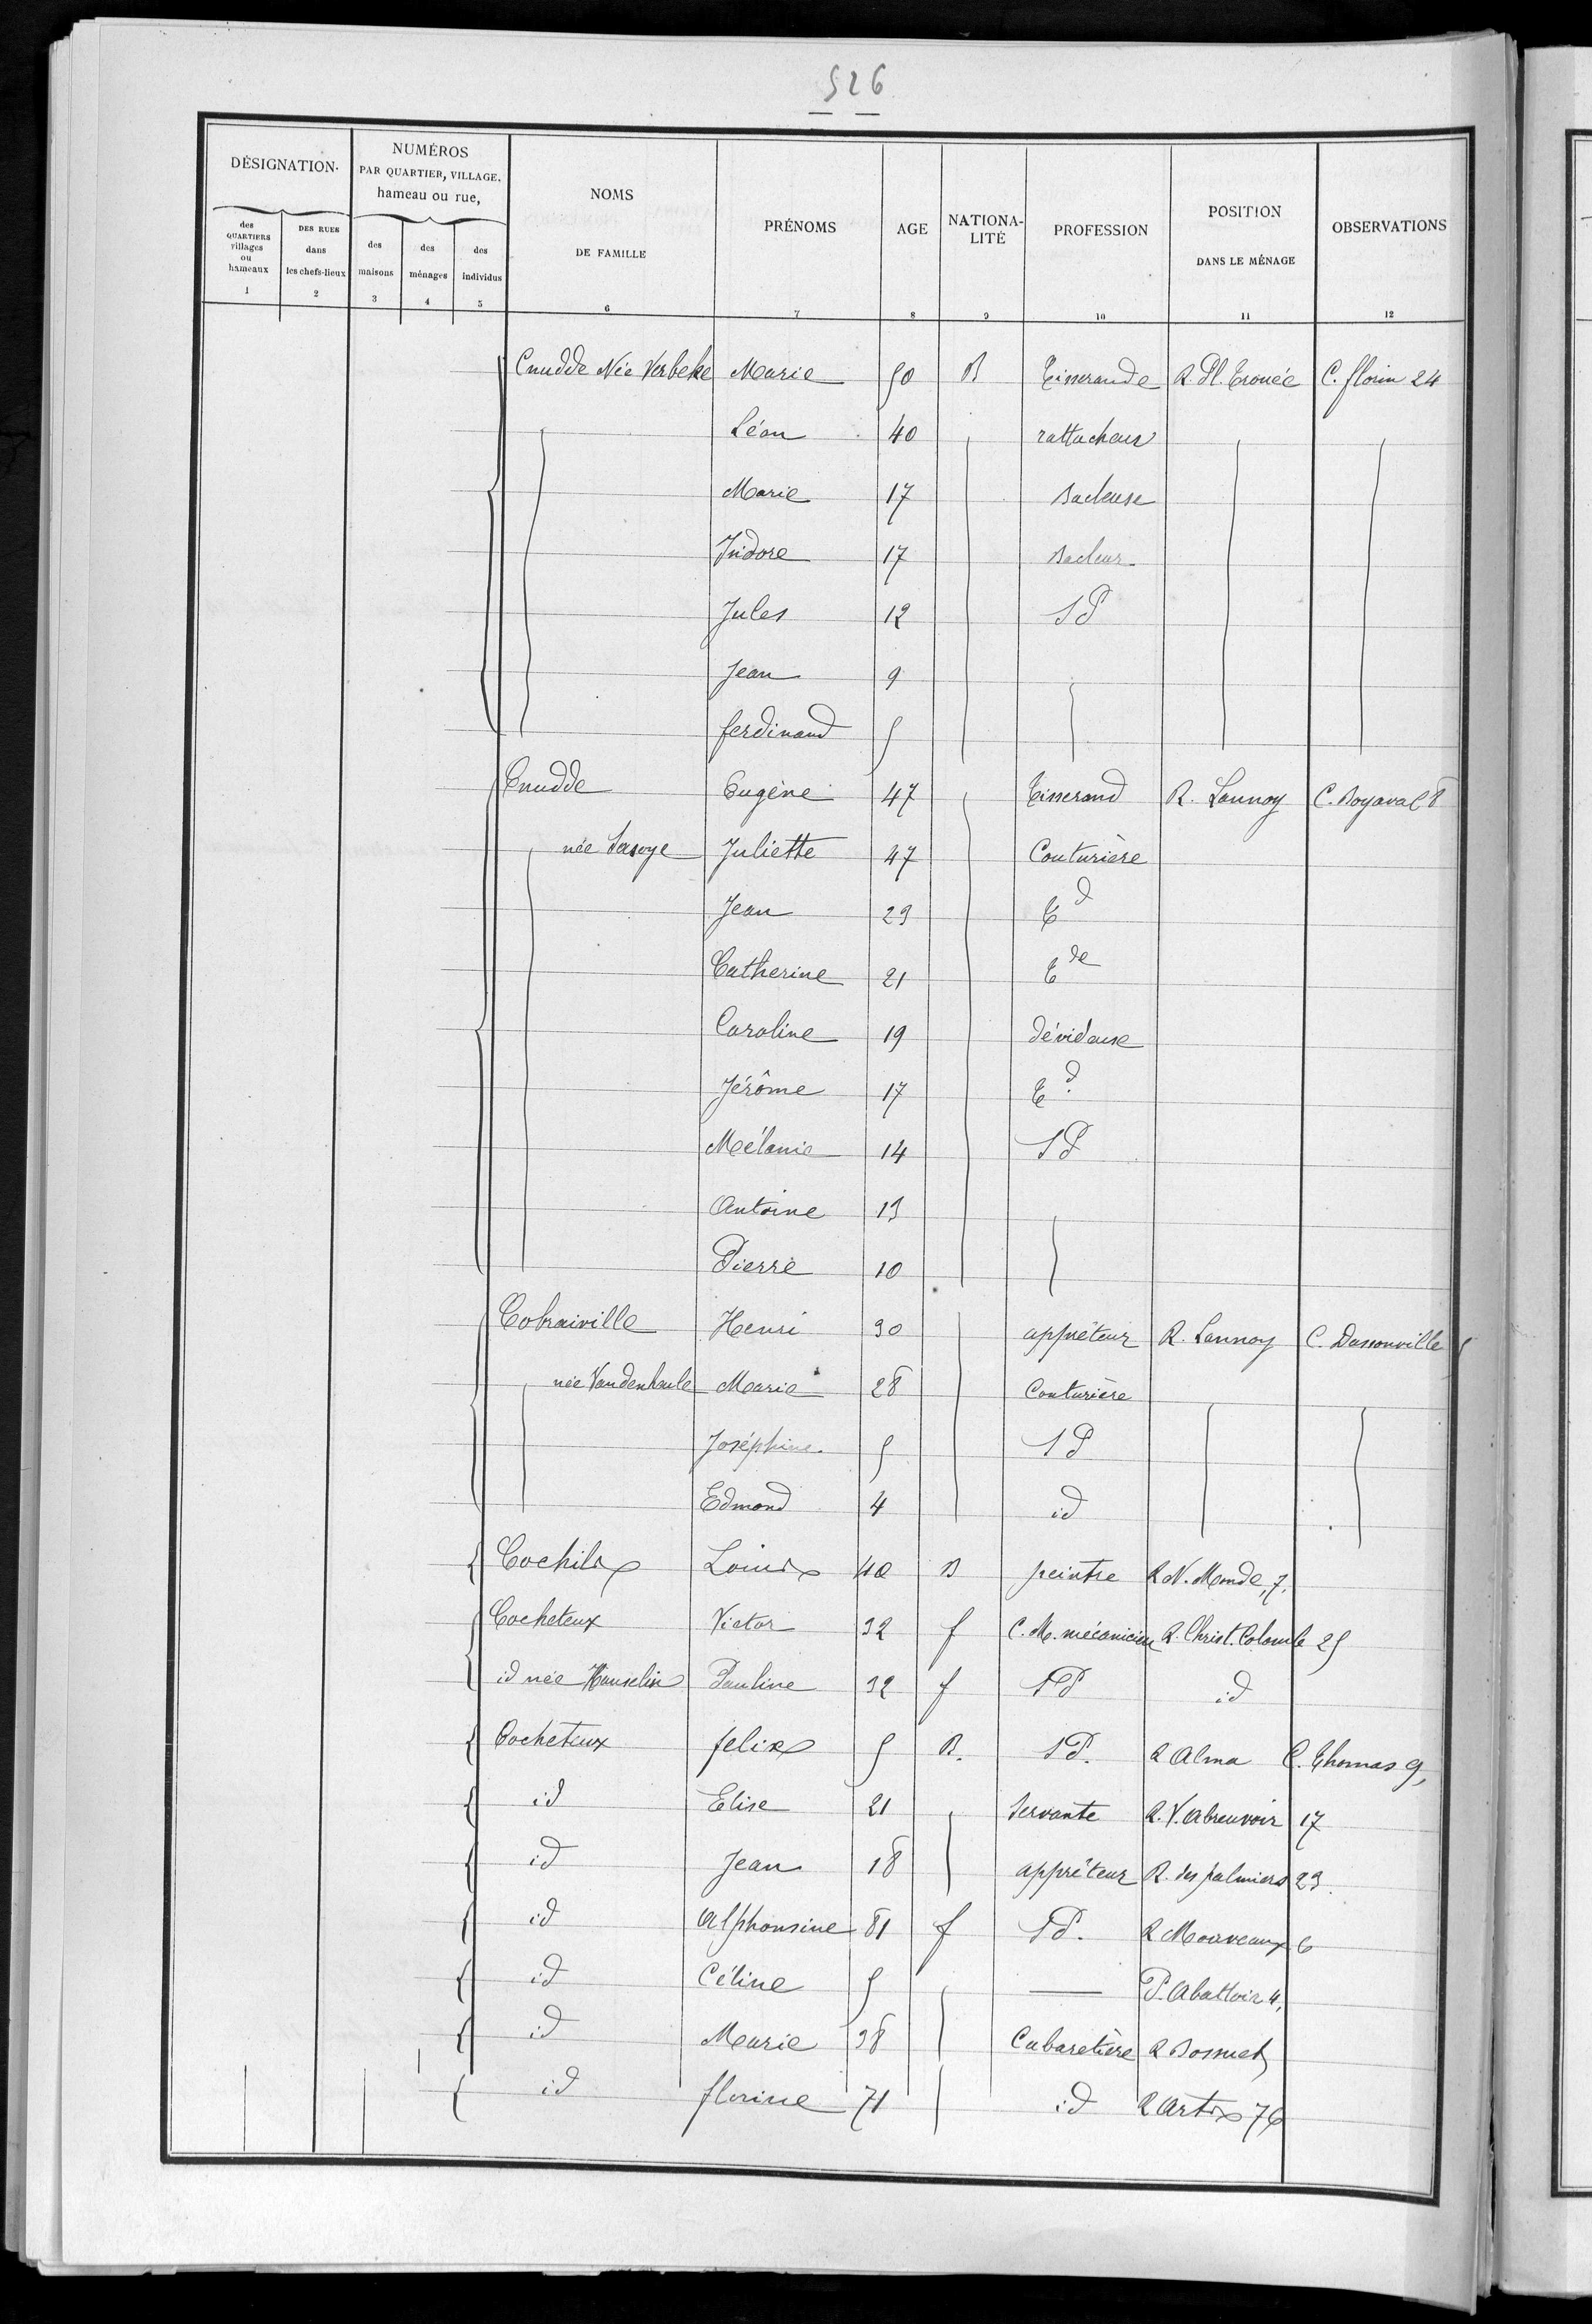 526
DÉSIGNATION
NUMÉROS
PAR QUARTIER, VILLAGE,
hameau ou rue,
NOMS
DE FAMILLE
PRÉNOMS
AGE
NATIONA-
LITÉ
PROFESSION
POSITION
DANS LE MÉNAGE
OBSERVATIONS
des
QUARTIERS
villages
ou
hameaux
DES RUES
dans
les chefs-lieux
des
maisons
des
ménages
des
individus
1 2 3 4 5 6 7 8 9 10 11 12
Cnudde Née Verbeke Marie 50 B Tisserande R. Pl. Trouée C. florin 24
Léon 40 rattacheur
Marie 17 Bacleuse
Isidore 17 Bacleur
Jules 12 SP
Jean 9
ferdinand 5
Cnudde Eugène 47 Tisserand R. Lannoy C. Boyaval 8
née Juliette 47 Couturière
Jean 23 Td
Catherine 21 Tde
Caroline 19 dévideuse
Jérôme 17 Td
Mélanie 14 SP
Antoine 13
Pierre 10
Cobraiville Henri 30 apprêteur R. Lannoy C. Dassonville 5
née Vandenhaule Marie 28 Couturière
Joséphine 5 SP
Edmond 4 id
Louis 40 B peintre R N. Monde, 7.
Cocheteux Victor 32 f C. M. mécanicien R. Christ. Colomb 25
id née Hanselin Pauline 32 f SP id
Cocheteux felix 5 B. SP. R Alma C. Thomas 9,
id Elise 21 Servante R. V. Abreuvoir 17
id Jean 18 apprêteur R. des palmiers 23.
id Alphonsine 81 f SP. R Mouveaux 6
id Céline 5 — P. Abattoir 4,
id Marie 38 Cabaretière R Bossuet
id florine 71 id R Artois 76